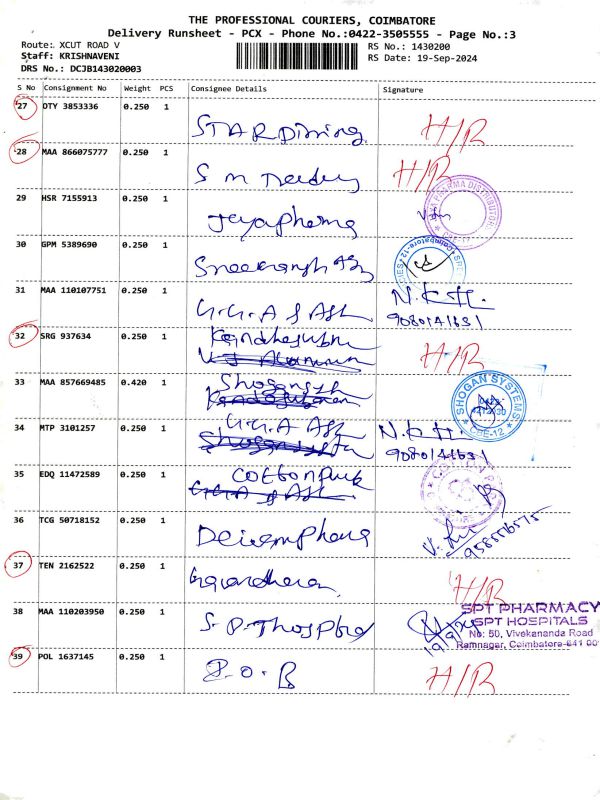 THE PROFESSIONAL COURIERS, COIMBATORE
Delivery Runsheet - PCX - Phone No.:0422-3505555 - Page No.:3
Route: XCUT ROAD V
RS No.: 1430200
Staff: KRISHNAVENI
RS Date: 19-Sep-2024
DRS No.: DCJB143020003
S No Consignment No Weight PCS Consignee Details Signature
27 OTY 3853336 0.250 1
STAR Dining H/R
28 MAA 866075777 0.250 1
S M H/R
29 HSR 7155913 0.250 1
Jayapharma
30 GPM 5389690 0.250 1
31 MAA 110107751 0.250 1
G.G.A & ASL N.K.
9080141631
32 SRG 937634 0.250 1
H/R
33 MAA 857669485 0.420 1
SHOGAN SYSTEMS
CBE-12
34 MTP 3101257 0.250 1
G.G.A ASL N.K.
9080141631
35 EDQ 11472589 0.250 1
Cottonpark
G.G.A & ASL
36 TCG 50718152 0.250 1
37 TEN 2162522 0.250 1
H/R
38 MAA 110203950 0.250 1
S.P.T Hospital
19/9/24
SPT PHARMACY
SPT HOSPITALS
No: 50, Vivekananda Road
Ramnagar, Coimbatore-641 00
39 POL 1637145 0.250 1
B.O.B H/R